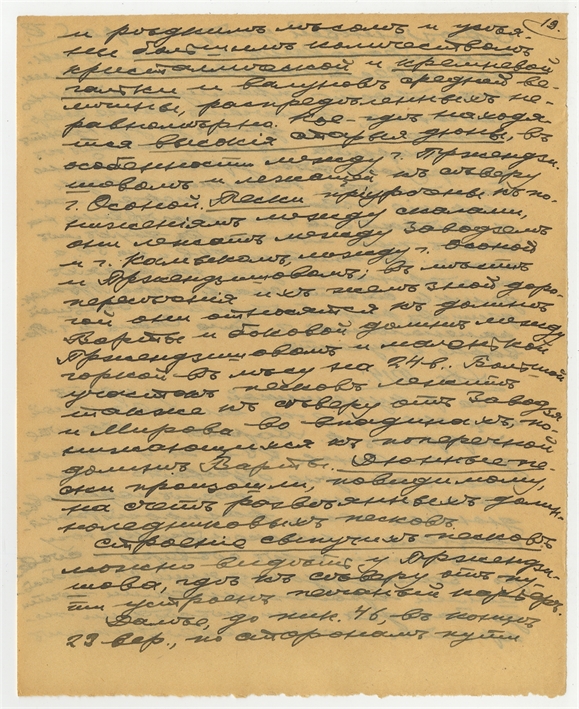 19.
и розднимъ мѣломъ и усѣя-
ны большимъ количествомъ
кристаллической и кремневой
гальки и валуновъ средней ве-
личины, распредѣленныхъ не-
равномѣрно. Кое-гдѣ находя
тся высокія старыя дюны, въ
особенности между г. Пржендзи-
шовомъ и лежащей къ сѣверу
г. Осоной. Пески пріурочены къ по-
ниженіямъ между скалами,
они лежатъ между Заводземъ
и г. Камыкомъ, между г. Осоной
и Пржендзишовомъ; въ мѣстѣ
пересѣченія ихъ желѣзной доро-
гой они относятся къ долинѣ
Варты и боковой долинѣ между
Пржендзишовомъ и маленькой
горкой въ лѣсу на 24 в.. Большой
участокъ песковъ лежитъ
также къ сѣверу отъ Заводзя
и Мирова во впадинахъ, по-
нижающихся къ поперечной
долинѣ Варты. Дюнные пе-
ски произошли, повидимому,
на счетъ развѣянныхъ долин-
ноледниковыхъ песковъ.
Строеніе сыпучихъ песковъ
можно видѣть у Пржендзи-
шова, гдѣ къ сѣверу отъ пу-
ти устроенъ песчаный карьеръ.
Далѣе, до пик. 46, въ концѣ
23 вер., по сторонамъ пути